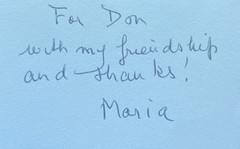 For Don
with my friendship
and thanks!
Maria